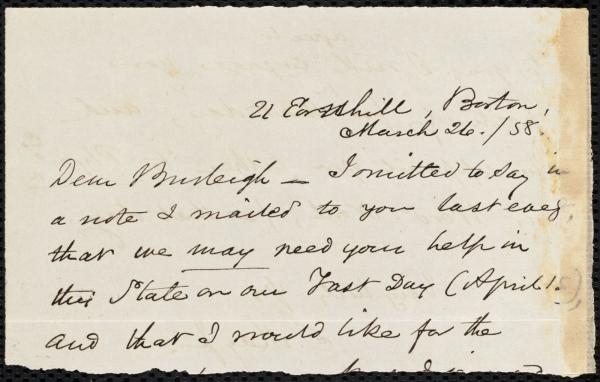 21 Cornhill, Boston,
March 26./58.
Dear Burleigh — I omitted to say in
a note I mailed to you last eveg,
that we may need your help in
this State on our Fast Day (April 15),
and that I would like for the